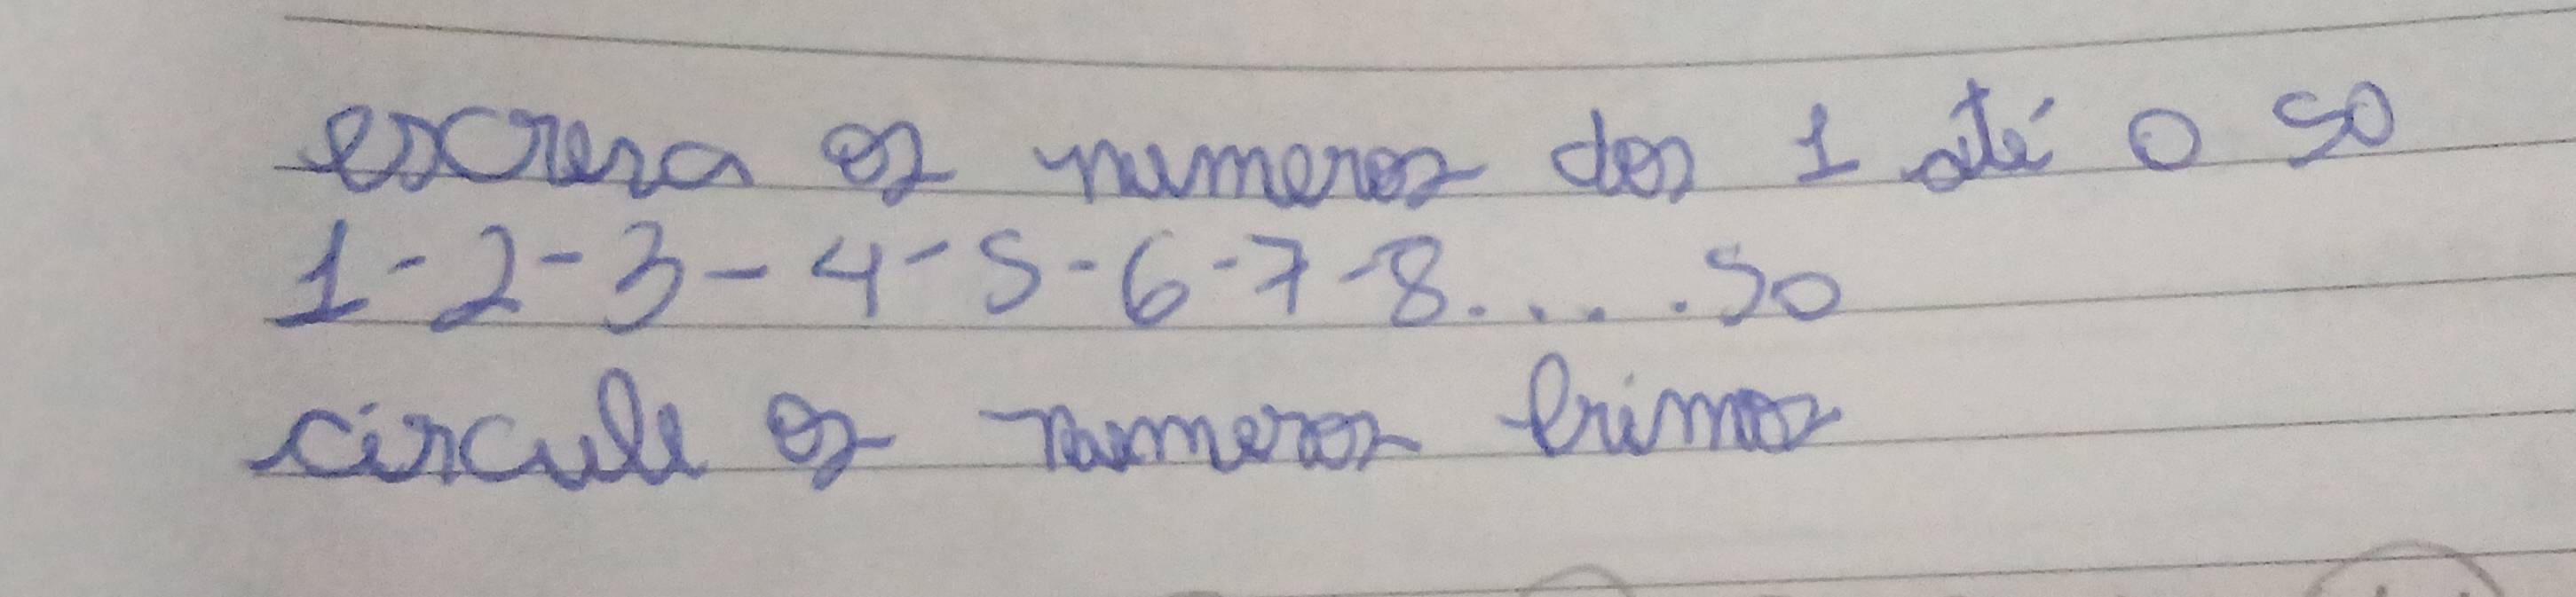 escreva os numeros dos 1 até o 50
1-2-3-4-5-6-7-8.....50
circule os numeros primos